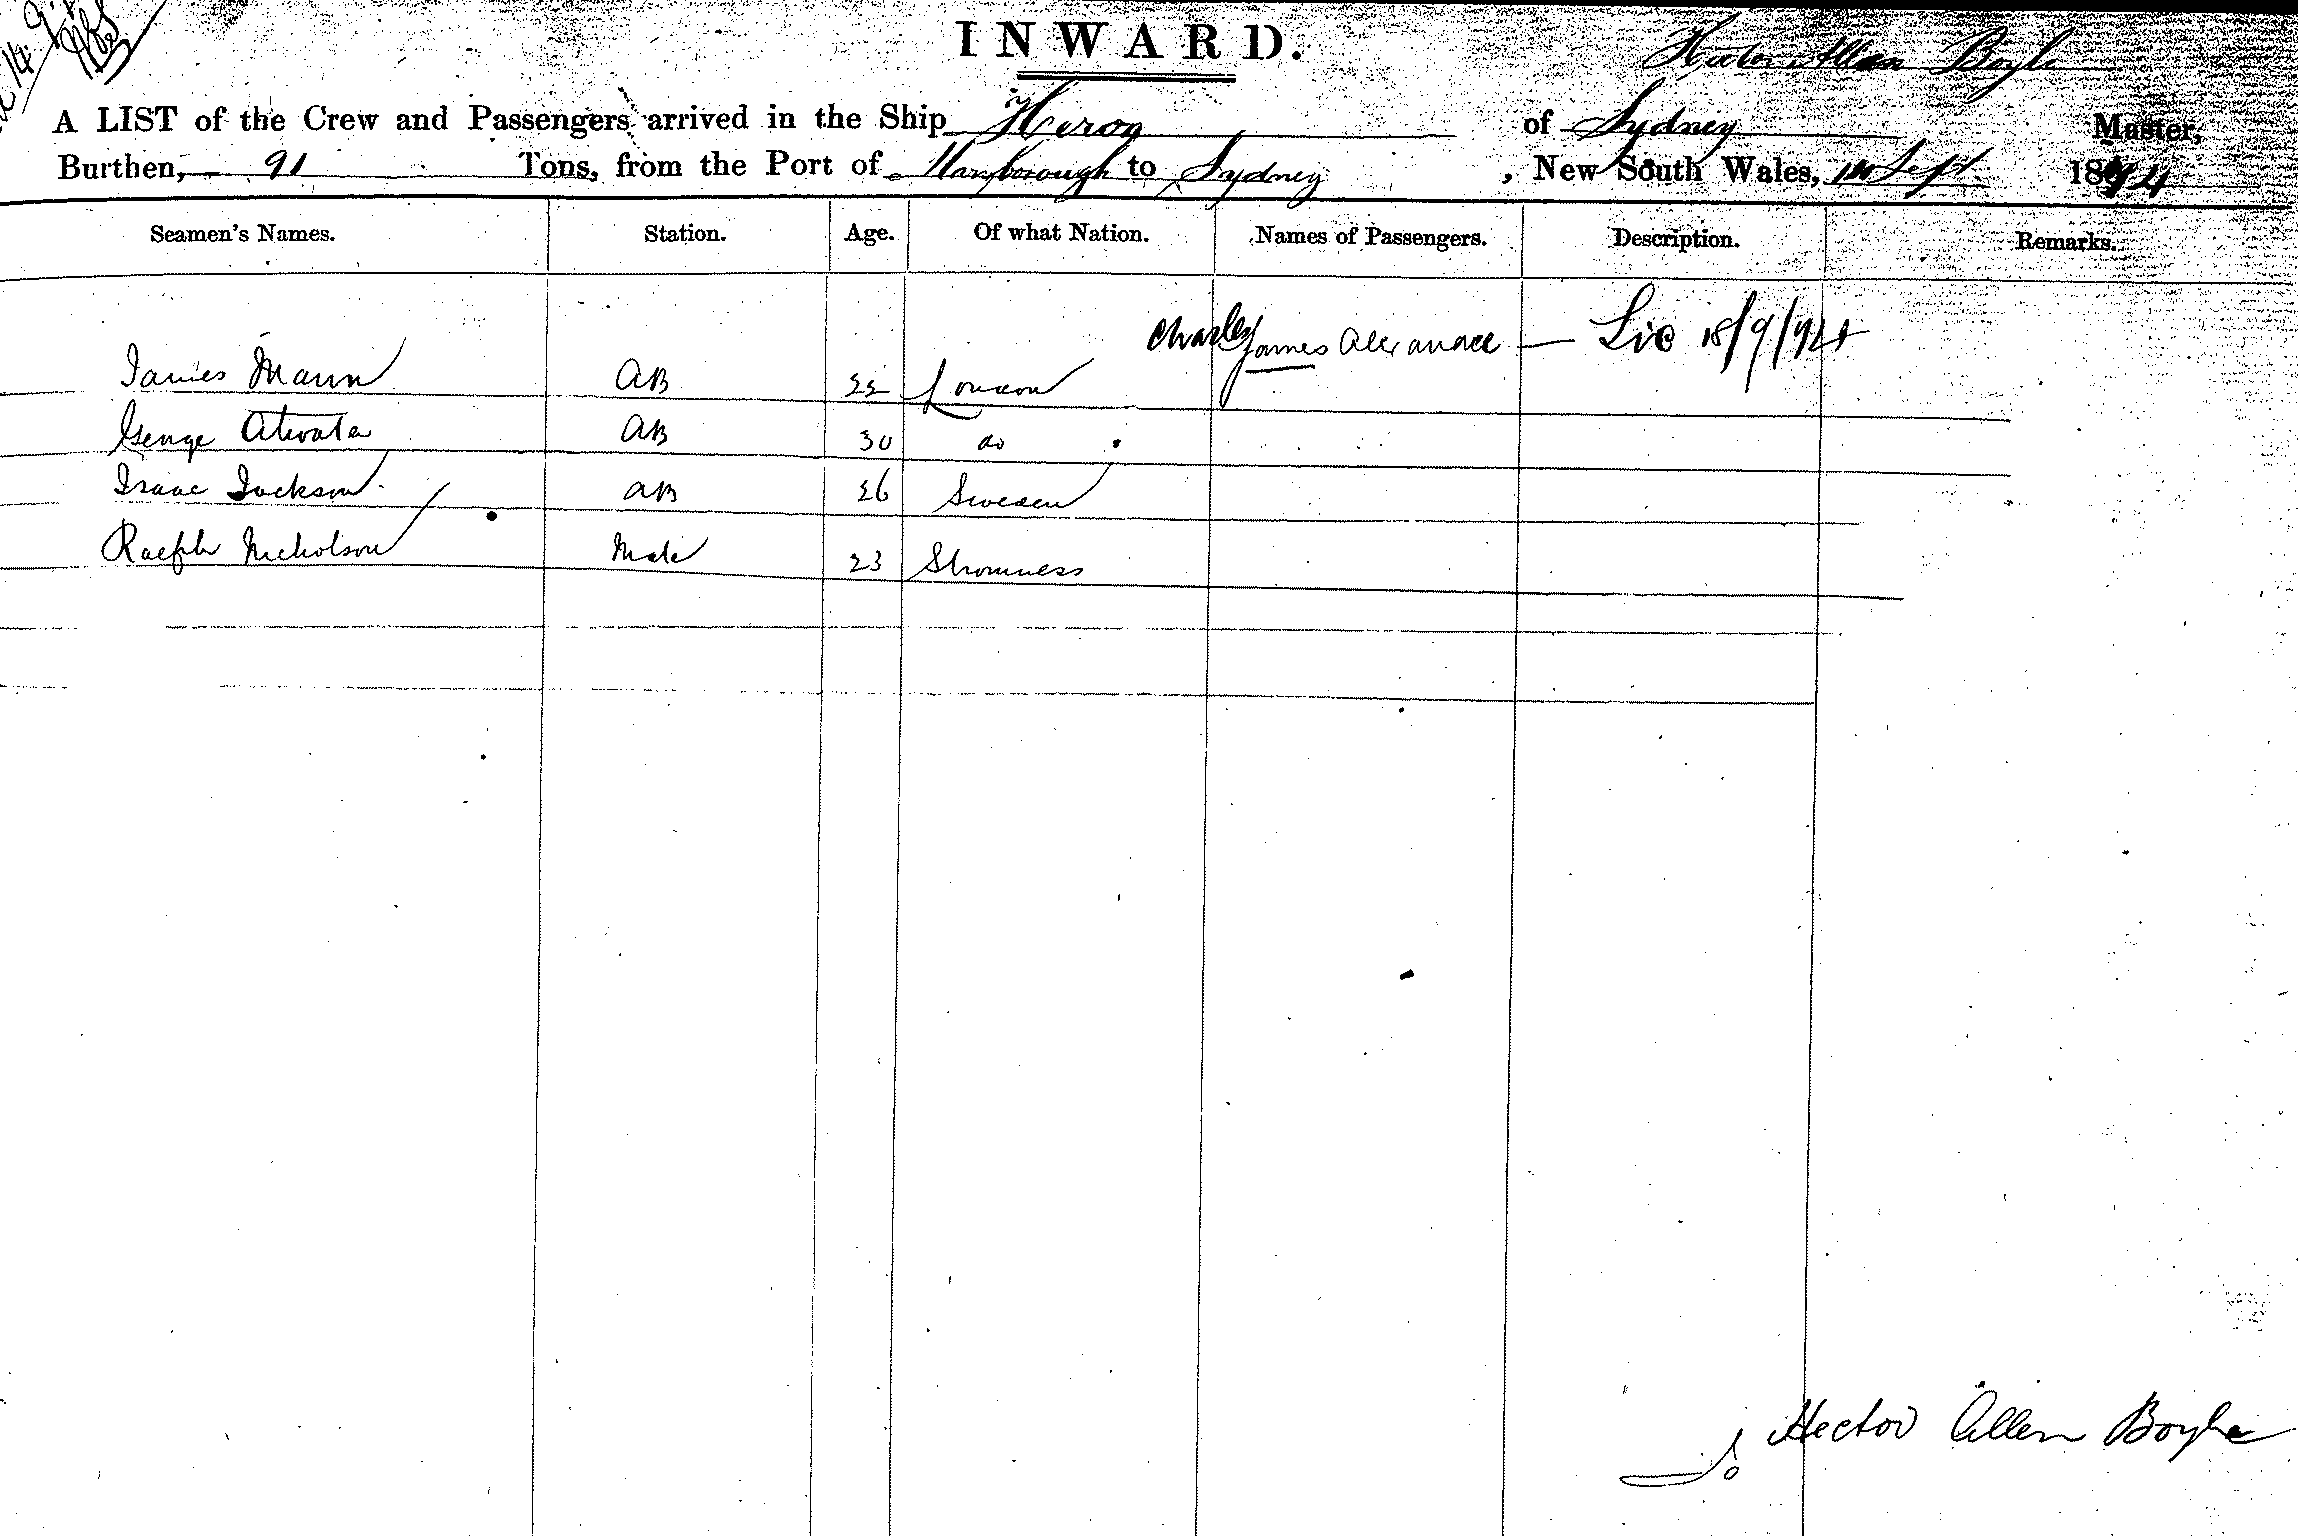 INWARD.
Hector Allen Boyle
A LIST of the Crew and Passengers arrived in the Ship Heron of Sydney Master,
Burthen, 91 Tons, from the Port of Maryborough to Sydney, New South Wales, Sept 1894
Seamen's Names. Station. Age. Of what Nation. Names of Passengers. Description. Remarks.
Charles James Alexander — Lic 18/9/94
James Mann AB 22 London
George Atwater AB 30 do
Isaac Jackson AB 26 Sweden
Raefph Nicholson Mate 23 Stromness
Hector Allen Boyle